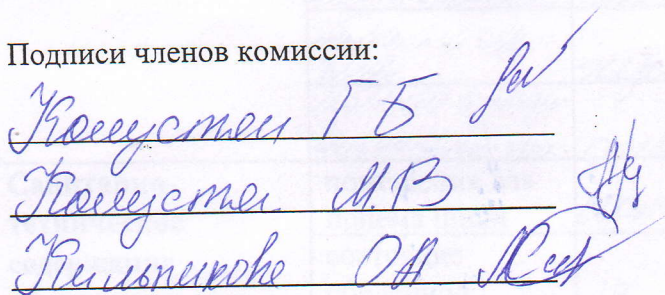 Подписи членов комиссии:
Калустян Г Б
Калустян М.В
Кильпикова ОА